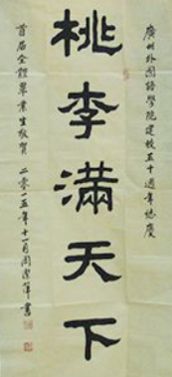 廣州外國語學院建校五十週年志慶
桃李滿天下
首届全體畢業生敬賀 二零一五年十一月周潔筆書